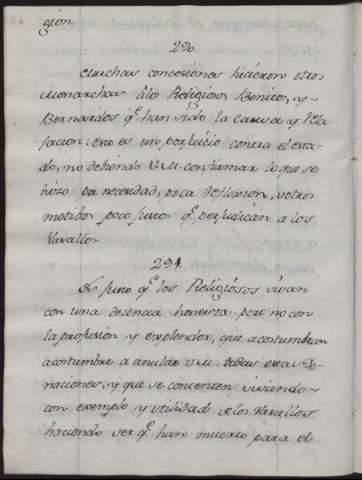 gion.
290
Muchas concesiones hicieron otros
Monarchas á los Religiosos Benitos, y
Bernardos qe. han sido la causa y Rela-
facion: esto es un perjuicio contra el esta-
do, no debiendo V.M. confirmar lo que se
hizo por necesidad, poca reflexion, y otros
motibos poco justos qe. perjudican á los
Vasallos.
291.
Es justo qe. los Religiosos vivan
con una decencia honesta, pero no con
la profusion y explendor, que acostumbran
acostumbre a anular V.M. todas estas do-
naciones, y que se contenten viviendo
con exemplo y utilidad de los Vasallos
haciendo ver qe. han muerto para el